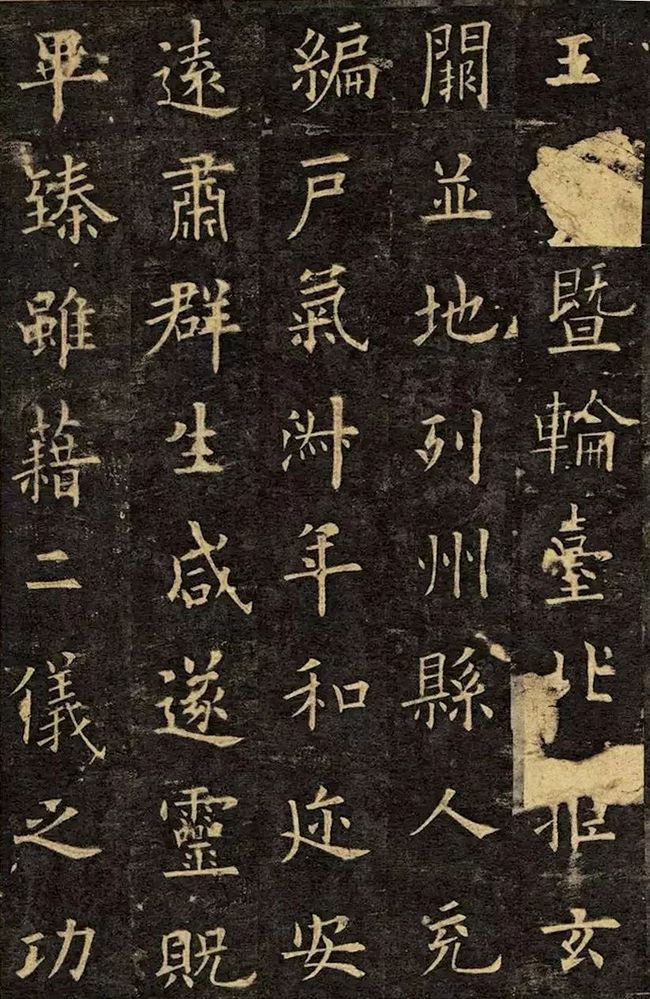 王暨輪臺北拒玄
闕並地列州縣人充
編戶氣淑年和迩安
遠肅群生咸遂靈貺
畢臻雖藉二儀之功